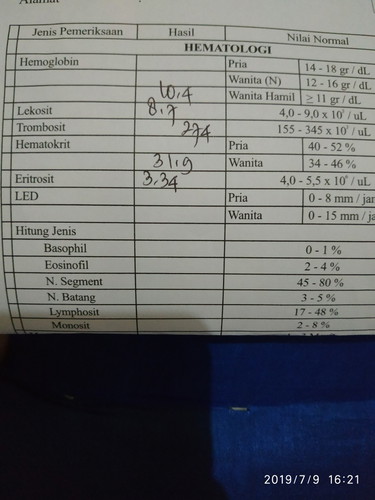 Jenis Pemeriksaan Hasil Nilai Normal
HEMATOLOGI
Hemoglobin Pria 14 - 18 gr / dL
Wanita (N) 12 - 16 gr / dL
10,4 Wanita Hamil ≥ 11 gr / dL
Lekosit 8.7 4,0 - 9,0 x 10³ / uL
Trombosit 274 155 - 345 x 10³ / uL
Hematokrit Pria 40 - 52 %
31.9 Wanita 34 - 46 %
Eritrosit 3.34 4,0 - 5,5 x 10⁶ / uL
LED Pria 0 - 8 mm / jam
Wanita 0 - 15 mm / ja
Hitung Jenis
Basophil 0 - 1 %
Eosinofil 2 - 4 %
N. Segment 45 - 80 %
N. Batang 3 - 5 %
Lymphosit 17 - 48 %
Monosit 2 - 8 %
2019/7/9 16:21